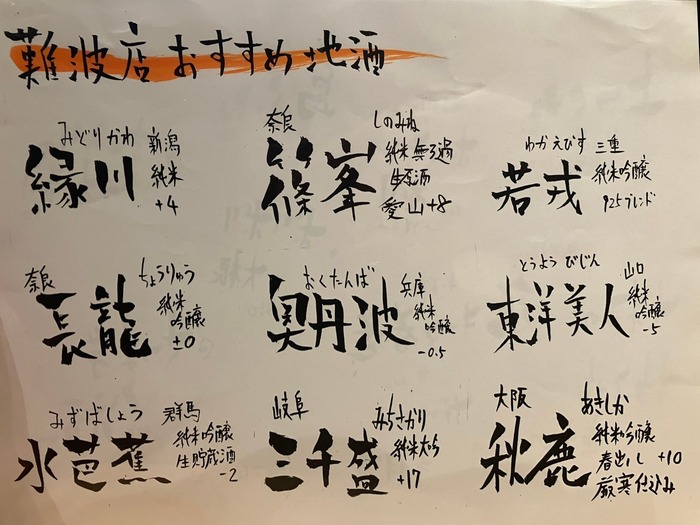 難波店おすすめ地酒
みどりかわ
緑川
新潟
純米
+4
奈良
しのみね
篠峯
純米無ろ過
生原酒
愛山+8
わかえびす
若戎
三重
純米吟醸
925ブレンド
奈良
ちょうりゅう
長龍
純米
吟醸
±0
おくたんば
奥丹波
兵庫
純米
吟醸
-0.5
とうようびじん
東洋美人
山口
純米
吟醸
-5
みずばしょう
水芭蕉
群馬
純米吟醸
生貯蔵酒
-2
岐阜
みちさかり
三千盛
純米大吟
+17
大阪
あきしか
秋鹿
純米吟醸
春出し +10
厳寒仕込み